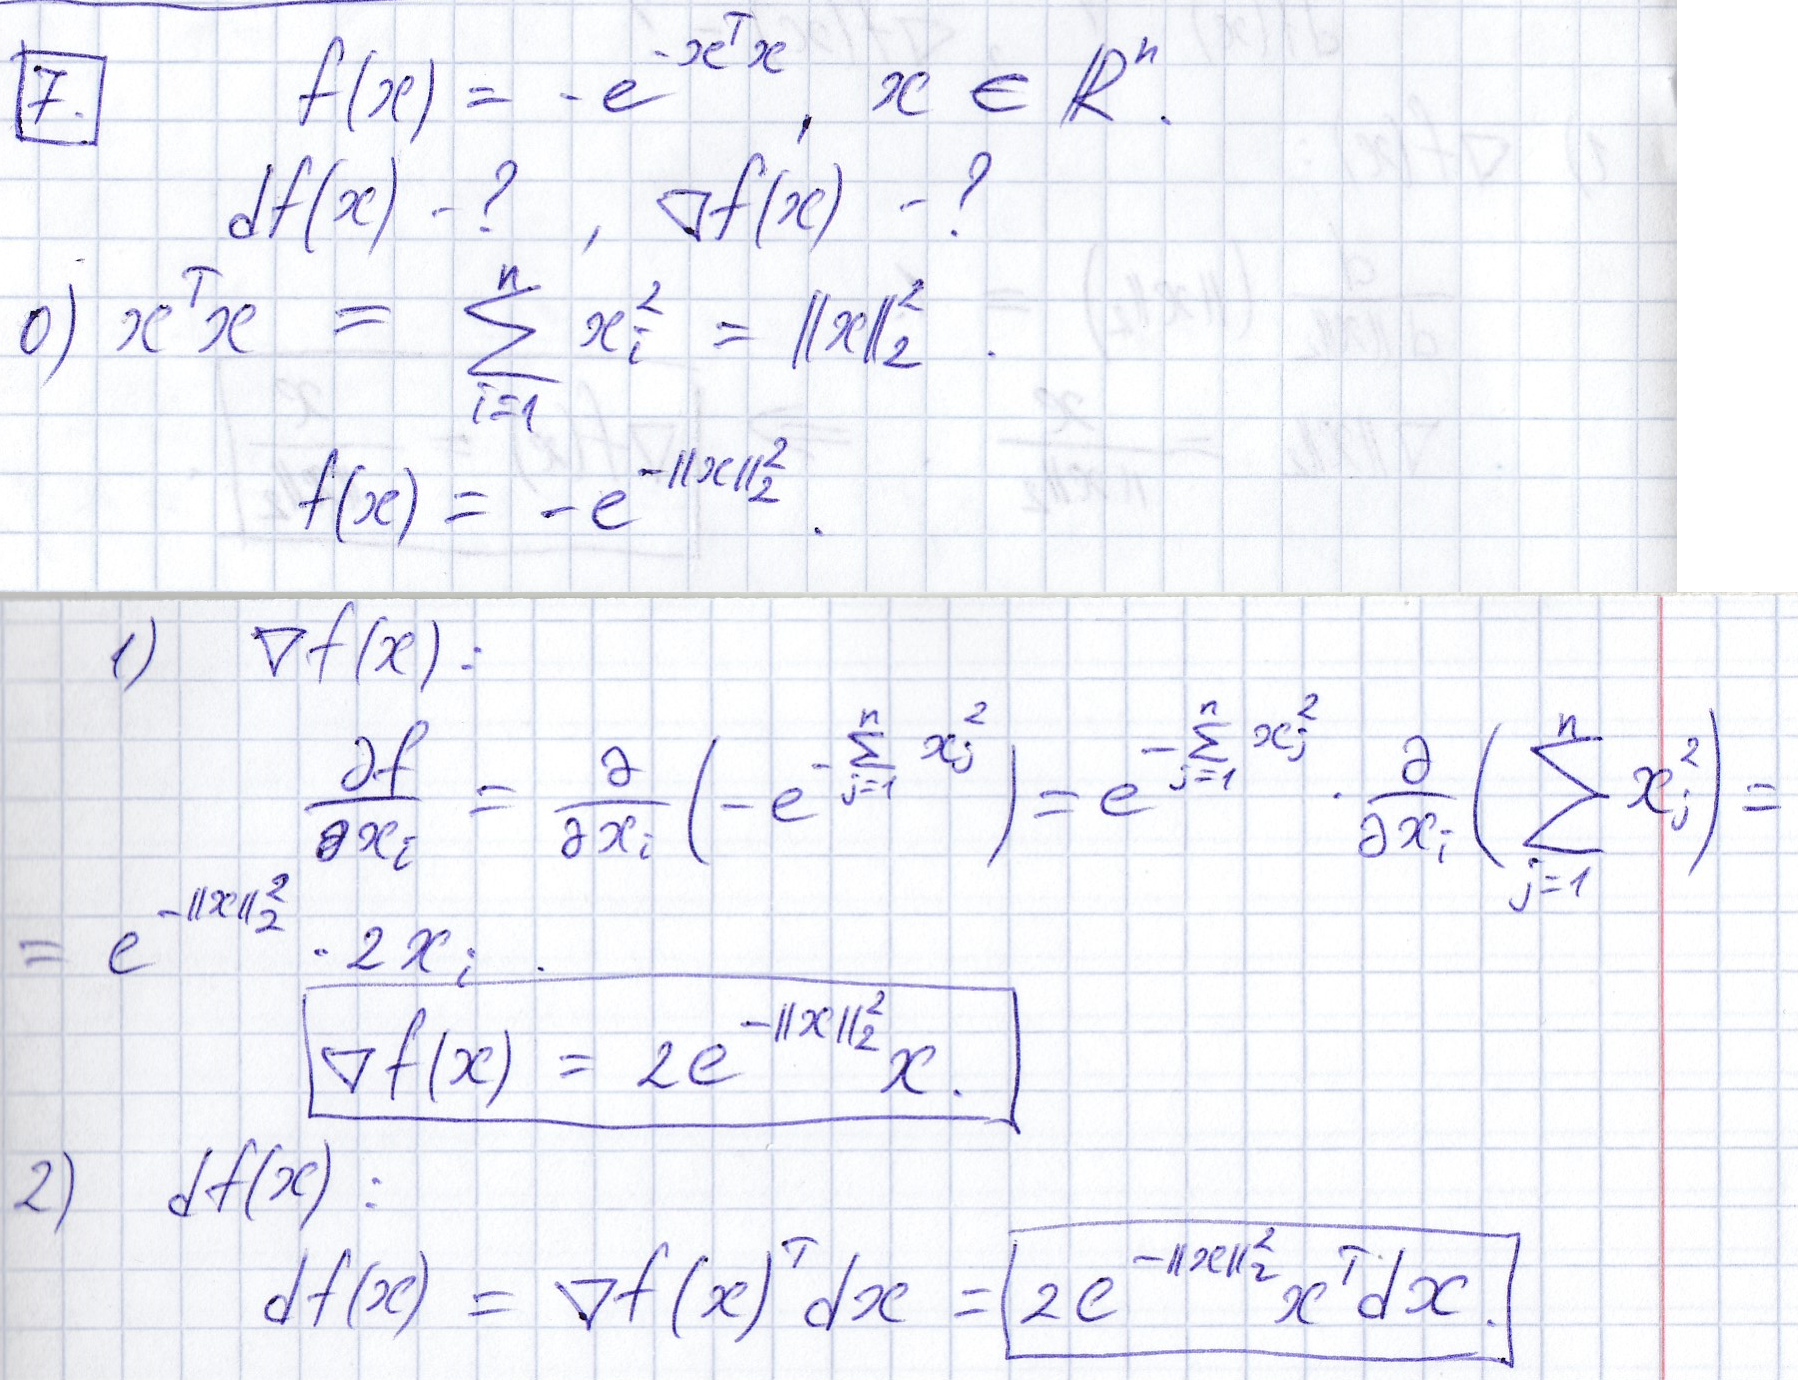 7. f(x) = -e^{-x^T x}, x ∈ ℝ^n.
df(x) - ?, ∇f(x) - ?
0) x^T x = ∑_{i=1}^{n} x_i^2 = ||x||_2^2.
f(x) = -e^{-||x||_2^2}.
1) ∇f(x):
∂f/∂x_i = ∂/∂x_i (-e^{-∑_{j=1}^{n} x_j^2}) = e^{-∑_{j=1}^{n} x_j^2} · ∂/∂x_i (∑_{j=1}^{n} x_j^2) =
= e^{-||x||_2^2} · 2x_i.
∇f(x) = 2e^{-||x||_2^2} x.
2) df(x):
df(x) = ∇f(x)^T dx = 2e^{-||x||_2^2} x^T dx.